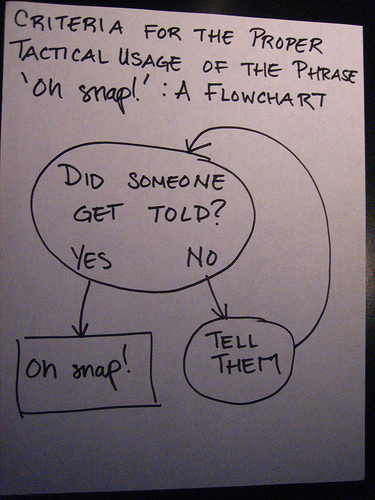 CRITERIA FOR THE PROPER
TACTICAL USAGE OF THE PHRASE
'Oh snap!': A FLOWCHART
DID SOMEONE
GET TOLD?
YES NO
Oh snap!
TELL
THEM